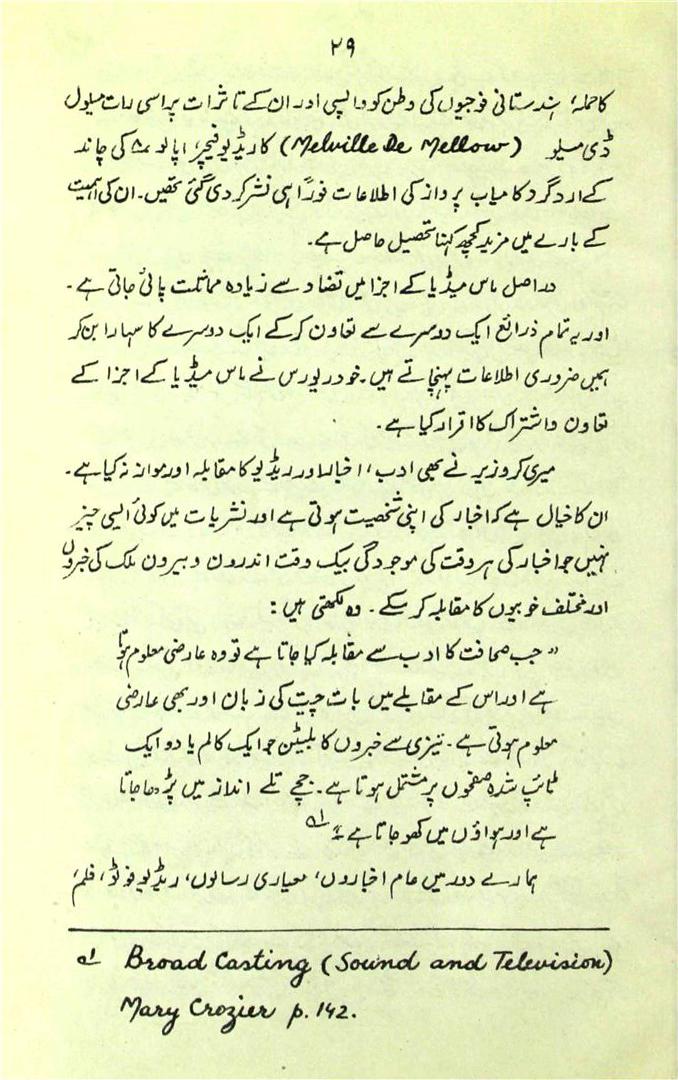 ۲۹
کا حملہ، ہندستانی فوجیوں کی وطن کو واپسی اور ان کے تاثرات پر اسی رات میلول
ڈی میلو (Melville De Mellow) کا ریڈیو فیچر، اپالو ۸ کی چاند
کے اردگرد کامیاب پرواز کی اطلاعات فوراً ہی نشر کر دی گئی تھیں۔ ان کی اہمیت
کے بارے میں مزید کچھ کہنا تحصیل حاصل ہے۔
دراصل ماس میڈیا کے اجزا میں تضاد سے زیادہ مماثلت پائی جاتی ہے۔
اور یہ تمام ذرائع ایک دوسرے سے تعاون کر کے ایک دوسرے کا سہارا بن کر
ہمیں ضروری اطلاعات پہنچاتے ہیں۔ خود ریورس نے ماس میڈیا کے اجزا کے
تعاون و اشتراک کا اقرار کیا ہے۔
میری کروزیر نے بھی ادب، اخبار اور ریڈیو کا مقابلہ اور موازنہ کیا ہے۔
ان کا خیال ہے کہ اخبار کی اپنی شخصیت ہوتی ہے اور نشریات میں کوئی ایسی چیز
نہیں جو اخبار کی ہر وقت کی موجودگی بیک وقت اندرون و بیرون ملک کی خبروں
اور مختلف خوبیوں کا مقابلہ کر سکے۔ وہ لکھتی ہیں:
"جب صحافت کا ادب سے مقابلہ کیا جاتا ہے تو وہ عارضی معلوم ہوتا
ہے اور اس کے مقابلے میں بات چیت کی زبان اور بھی عارضی
معلوم ہوتی ہے۔ تیزی سے خبروں کا بلیٹن جو ایک کالم یا دو ایک
ٹائپ شدہ صفحوں پر مشتمل ہوتا ہے۔ جچے تلے انداز میں پڑھا جاتا
ہے اور ہواؤں میں کھو جاتا ہے۔" ۱؎
ہمارے دور میں عام اخباروں، معیاری رسالوں، ریڈیو فوٹو، فلم،
۱؎ Broad Casting (Sound and Television)
Mary Crozier p. 142.